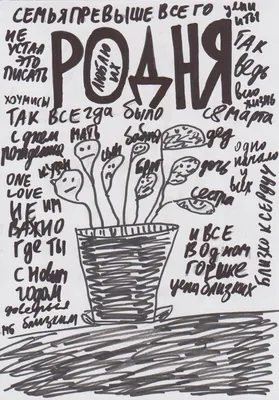 СЕМЬЯ ПРЕВЫШЕ ВСЕГО
РОДНЯ
ЛЮБЛЮ
ИХ
НЕ
УСТАЛ
ЭТО
ПИСАТЬ
ЦЕНИ
ИТЫ
ТАК
ВЕДЬ
ВСЮ
ЖИЗНЬ
ХОУМИСЫ
ТАК ВСЕГДА БЫЛО
С 8 МАРТА
С ДНЕМ
РОЖДЕНИЯ
МАТЬ
СЫН
БРАТ
ДЕД
ДОЧЬ
СЕСТРА
ОДНО
НАЧАЛО
У
ВСЕХ
ONE
LOVE
НЕ
ВАЖНО
ГДЕ ТЫ
С НОВЫМ
ГОДОМ
БЛИЗКИМ
БЛИЗКО К СЕРДЦУ
И ВСЕ
В ОДНОМ
ГОРШКЕ
ЦЕНА БЛИЗКИХ